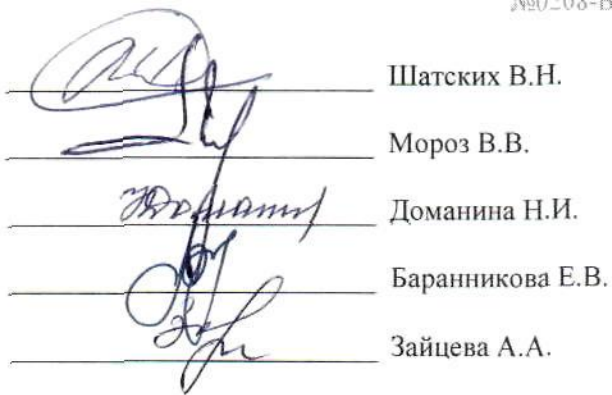 Шатских В.Н.
Мороз В.В.
Доманина Н.И.
Баранникова Е.В.
Зайцева А.А.